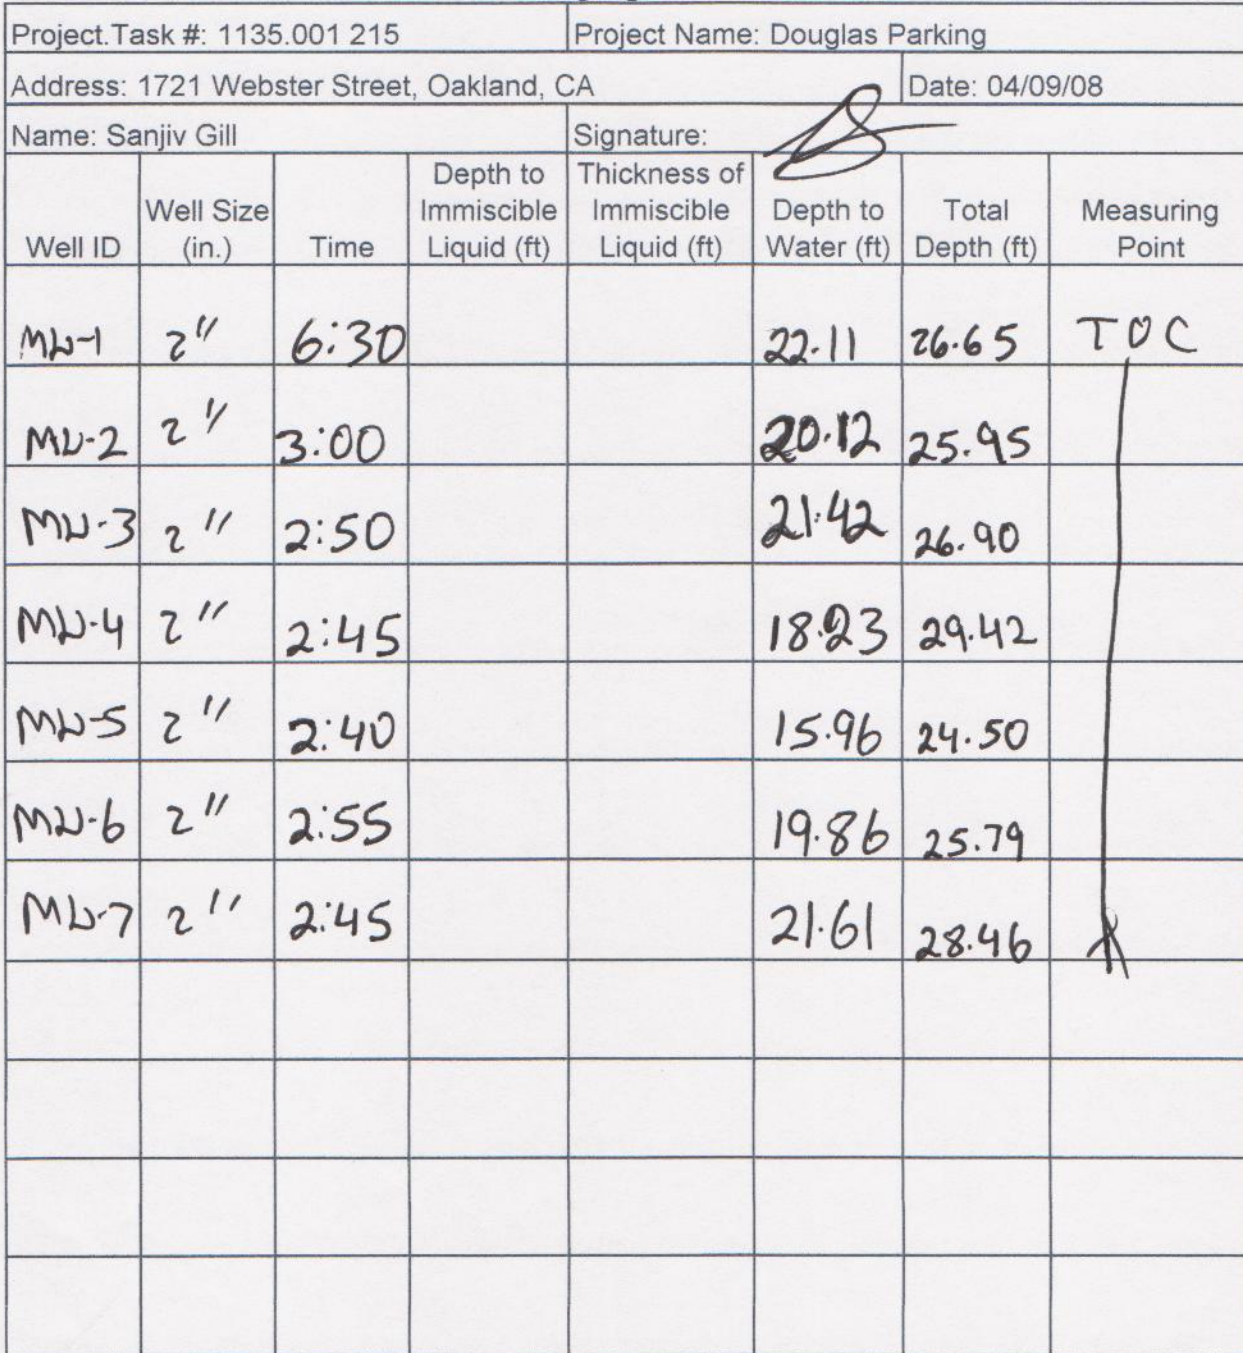 Project.Task #: 1135.001 215 Project Name: Douglas Parking
Address: 1721 Webster Street, Oakland, CA Date: 04/09/08
Name: Sanjiv Gill Signature:
Well ID Well Size (in.) Time Depth to Immiscible Liquid (ft) Thickness of Immiscible Liquid (ft) Depth to Water (ft) Total Depth (ft) Measuring Point
MW-1 2" 6:30 22.11 26.65 TOC
MW-2 2" 3:00 20.12 25.95
MW-3 2" 2:50 21.42 26.90
MW-4 2" 2:45 18.23 29.42
MW-5 2" 2:40 15.96 24.50
MW-6 2" 2:55 19.86 25.79
MW-7 2" 2:45 21.61 28.46